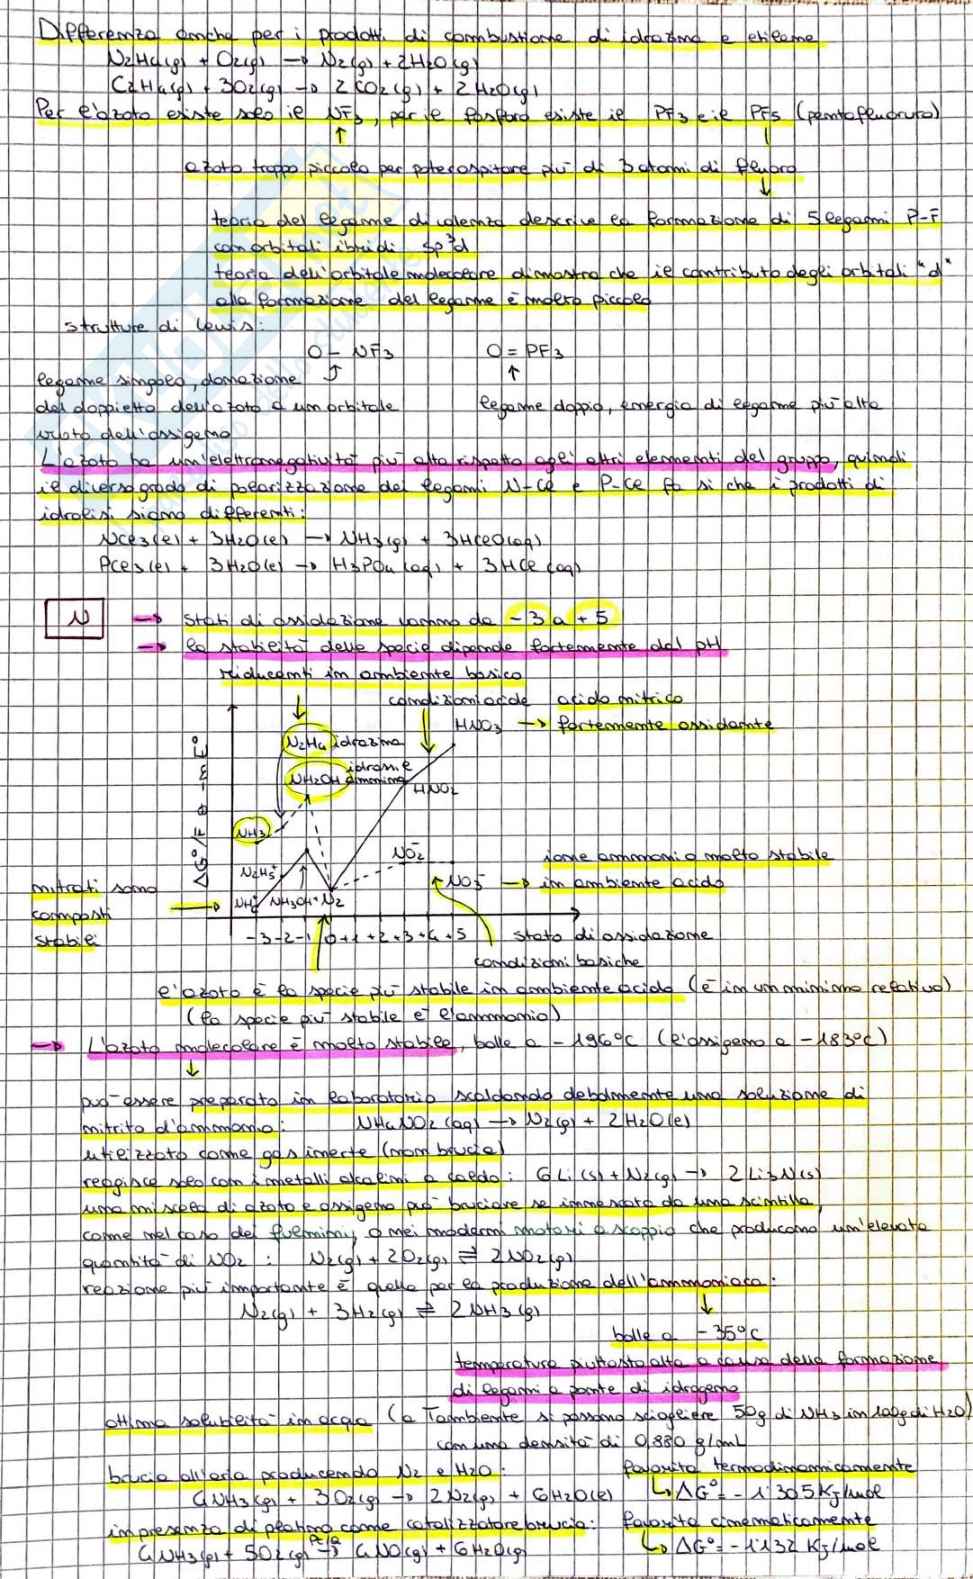 Differenza anche per i prodotti di combustione di idrazina e etilene
N2H4(g) + O2(g) → N2(g) + 2H2O(g)
C2H4(g) + 3O2(g) → 2CO2(g) + 2H2O(g)
Per l'azoto esiste solo il NF3, per il fosforo esiste il PF3 e il PF5 (pentafluoruro)
azoto troppo piccolo per poter ospitare più di 3 atomi di fluoro
teoria del legame di valenza descrive la formazione di 5 legami P-F
con orbitali ibridi sp3d
teoria dell'orbitale molecolare dimostra che il contributo degli orbitali "d"
alla formazione del legame è molto piccolo
strutture di Lewis:
O - NF3 O = PF3
legame singolo, donazione
del doppietto dell'azoto a un orbitale legame doppio, energia di legame più alta
vuoto dell'ossigeno
L'azoto ha un'elettronegatività più alta rispetto agli altri elementi del gruppo, quindi
il diverso grado di polarizzazione dei legami N-Cl e P-Cl fa si che i prodotti di
idrolisi siano differenti:
NCl3(l) + 3H2O(l) → NH3(g) + 3HClO(aq)
PCl3(l) + 3H2O(l) → H3PO4(aq) + 3HCl(aq)
N → Stati di ossidazione vanno da -3 a +5
→ la stabilità delle specie dipende fortemente dal pH
riducenti in ambiente basico
condizioni acide acido nitrico
HNO3 → fortemente ossidante
N2H4 idrazina
idrossil
NH2OH ammina
HNO2
ΔG°/F o -nE°
NH3
NO2-
N2H5+
ione ammonio molto stabile
NO3- → in ambiente acido
nitrati sono
composti
stabili
NH4+ NH3OH+ N2
-3 -2 -1 0 +1 +2 +3 +4 +5 stato di ossidazione
condizioni basiche
l'azoto è la specie più stabile in ambiente acido (è in un minimo relativo)
(la specie più stabile è l'ammonio)
→ L'azoto molecolare è molto stabile, bolle a -196°C (l'ossigeno a -183°C)
può essere preparato in laboratorio scaldando debolmente una soluzione di
nitrito d'ammonio: NH4NO2(aq) → N2(g) + 2H2O(l)
utilizzato come gas inerte (non brucia)
reagisce solo con i metalli alcalini a caldo: 6Li(s) + N2(g) → 2Li3N(s)
una miscela di azoto e ossigeno può bruciare se innescata da una scintilla,
come nel caso dei fulmini, o nei moderni motori a scoppio che producono un'elevata
quantità di NO2: N2(g) + 2O2(g) ⇌ 2NO2(g)
reazione più importante è quella per la produzione dell'ammoniaca:
N2(g) + 3H2(g) ⇌ 2NH3(g)
bolle a -35°C
temperatura piuttosto alta a causa della formazione
di legami a ponte di idrogeno
ottima solubilità in acqua (a Tambiente si possono sciogliere 50g di NH3 in 100g di H2O)
con una densità di 0,880 g/mL
brucia all'aria producendo N2 e H2O: favorita termodinamicamente
4NH3(g) + 3O2(g) → 2N2(g) + 6H2O(l) ↳ ΔG°= -1305 KJ/mole
in presenza di platino come catalizzatore brucia: favorita cinematicamente
4NH3(g) + 5O2(g) → 4NO(g) + 6H2O(g) ↳ ΔG°= -1132 KJ/mole